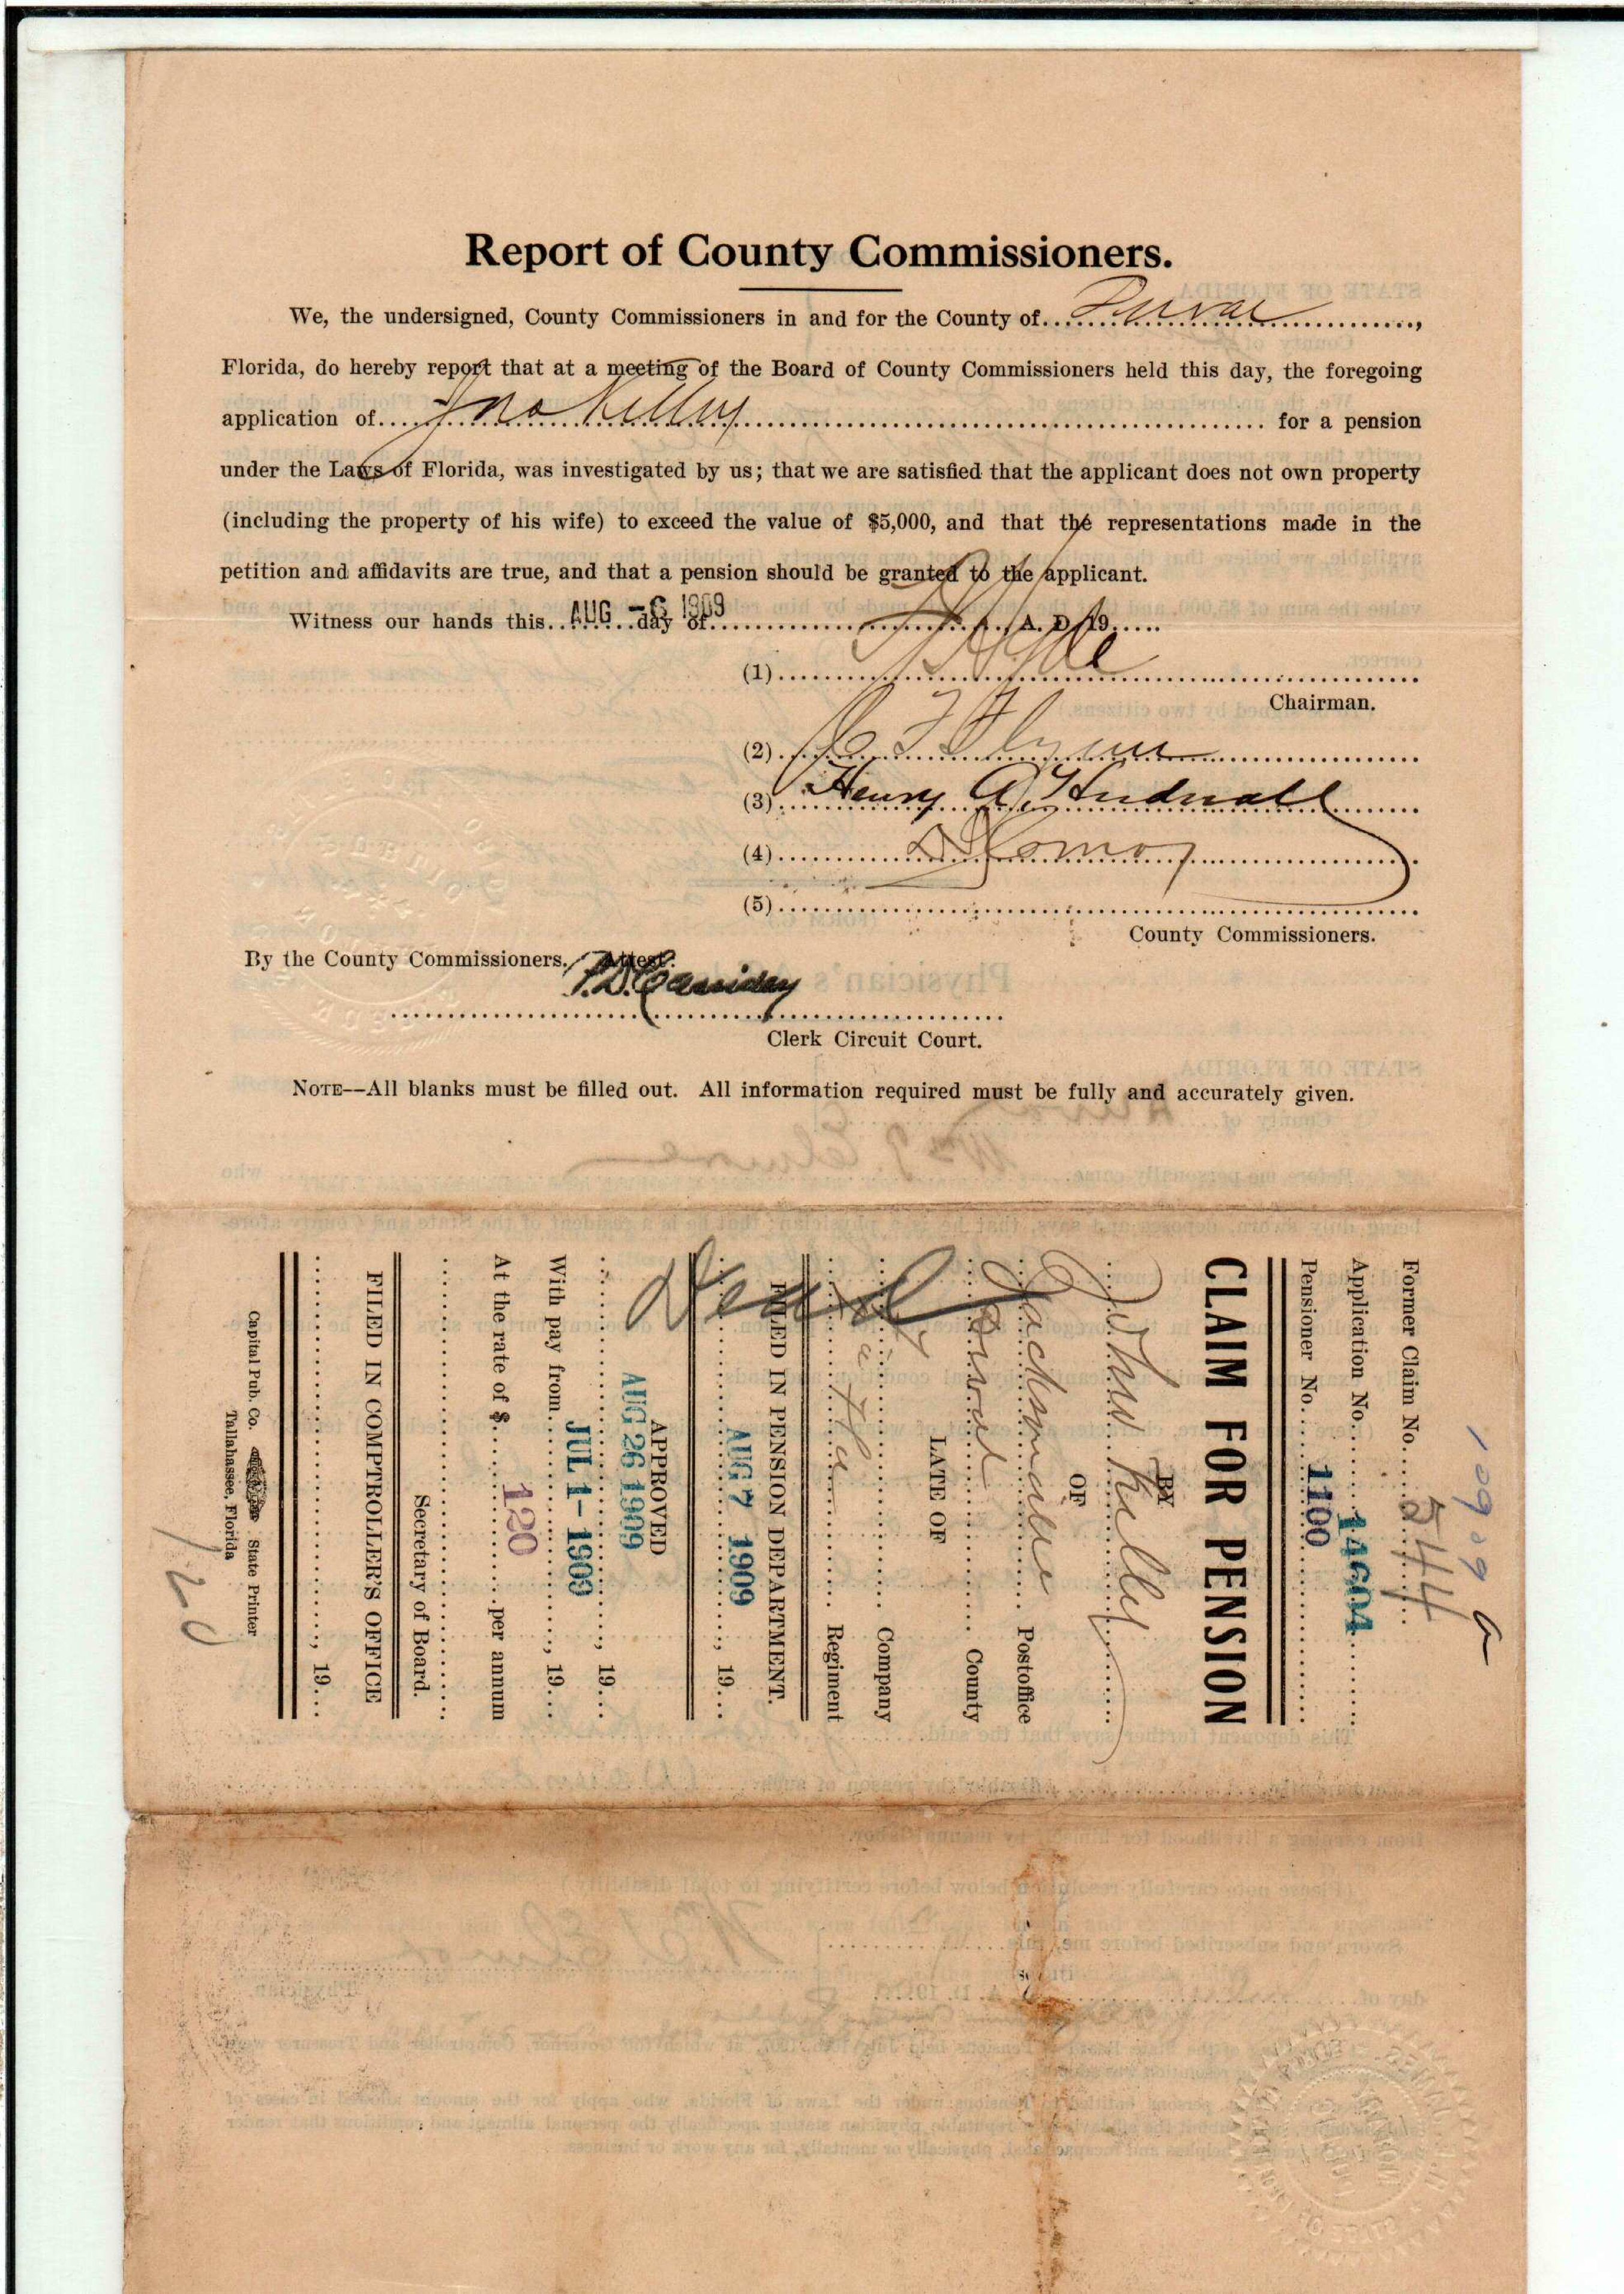 Report of County Commissioners.
We, the undersigned, County Commissioners in and for the County of Duval,
Florida, do hereby report that at a meeting of the Board of County Commissioners held this day, the foregoing
application of Jno Kelley for a pension
under the Laws of Florida, was investigated by us; that we are satisfied that the applicant does not own property
(including the property of his wife) to exceed the value of $5,000, and that the representations made in the
petition and affidavits are true, and that a pension should be granted to the applicant.
Witness our hands this AUG -6 1909 day of A. D. 19
(1)
Chairman.
(2) Flynn
(3) Henry A. Hudnall
(4)
(5)
County Commissioners.
By the County Commissioners. Attest:
P.D. Cassidey
Clerk Circuit Court.
NOTE--All blanks must be filled out. All information required must be fully and accurately given.
1909
Former Claim No. 544
Application No. 14604
Pensioner No. 1100
CLAIM FOR PENSION
BY
John Kelley
OF
Jacksonville Postoffice
Duval County
LATE OF
Company
Regiment
Dead
FILED IN PENSION DEPARTMENT.
AUG 7 1909, 19
APPROVED
AUG 26 1909, 19
With pay from JUL 1- 1909, 19
At the rate of $ 120 per annum
Secretary of Board.
FILED IN COMPTROLLER'S OFFICE
, 19
Capital Pub. Co. State Printer
Tallahassee, Florida
120